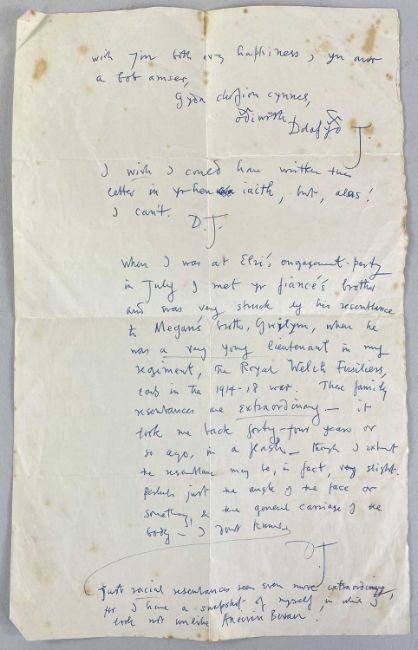 wish you both every happiness, yn awr
a bob amser,
Gyda chofion cynnes,
oddiwrth
Dafydd
J.
I wish I could have written this
letter in yr hen iaith, but, alas!
I can't.
D.J.
When I was at Elri's engagement-party
in July I met yr fiancé's brother
and was very struck by his resemblance
to Megan's brother, Gwilym, when he
was a very young lieutenant in my
regiment, the Royal Welch Fusiliers,
early in the 1914-18 war. These family
resemblances are extraordinary — it
took me back forty-four years or
so ago, in a flash — though I expect
the resemblance may be, in fact, very slight.
Perhaps just the angle of the face or
something, or the general carriage of the
body — I don't know.
DJ
Just racial resemblances seem even more extraordinary,
for I have a snapshot of myself in which I
look not unlike Aneurin Bevan.